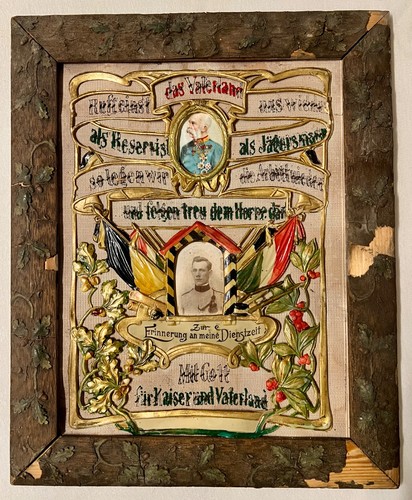 das Vaterland
Ruft einst uns wieder
als Reservist als Jägersmann
so legen wir die Arbeit nieder
und folgen treu dem Horne dan
Zur
Erinnerung an meine Dienstzeit
Mit Gott
für Kaiser und Vaterland